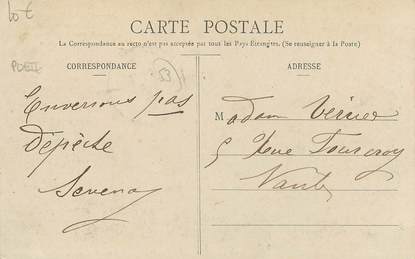 CARTE POSTALE
La Correspondance au recto n'est pas acceptée par tous les Pays Étrangers. (Se renseigner à la Poste)
CORRESPONDANCE
ADRESSE
53
pas
Dépêche
Madam Verrier
5 Rue Fourcroy
Nantes